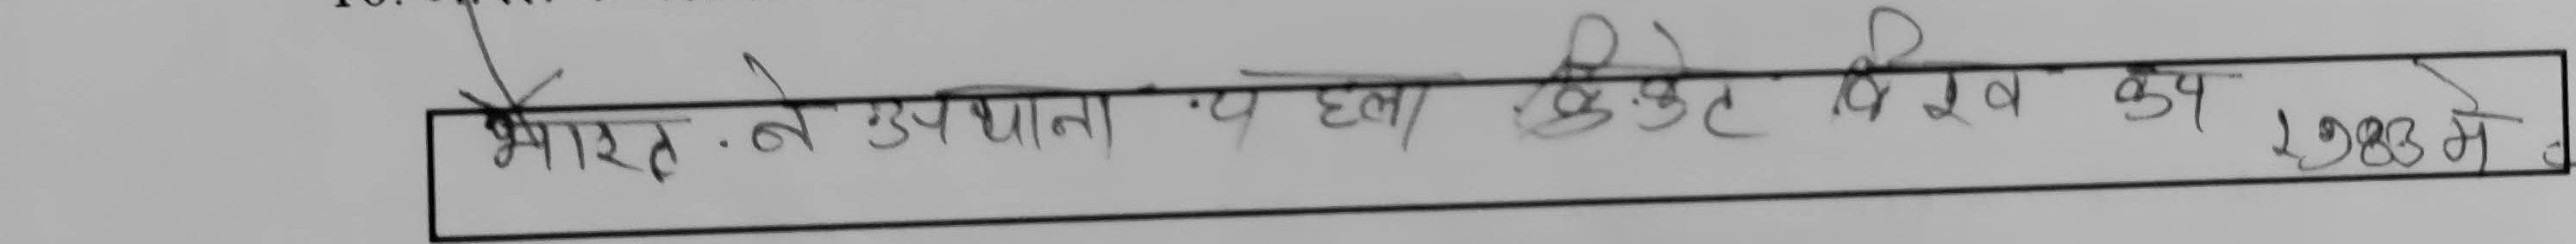 भारत ने उपथाना पहला क्रिकेट विश्व कप 1983 मे